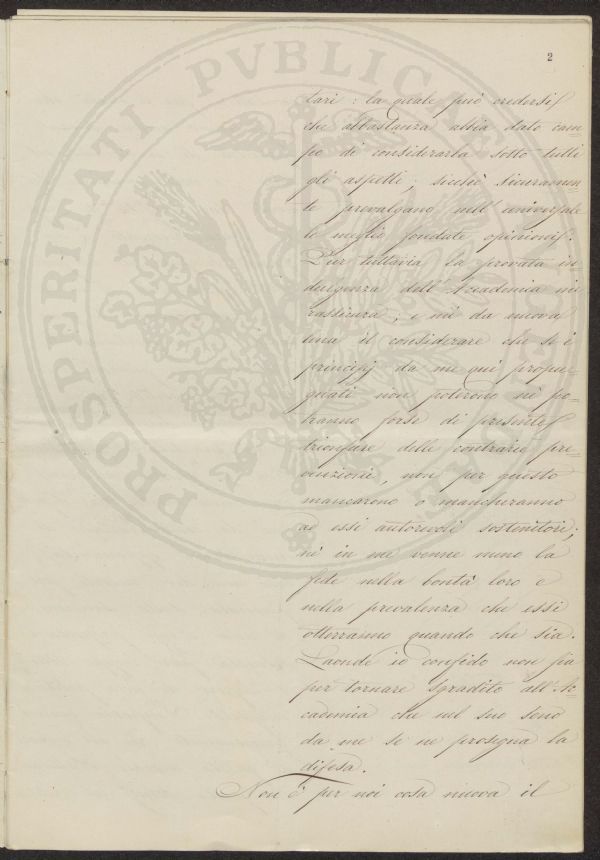 2
tari: la quale può credersi
che abbastanza abbia dato cam-
po di considerarla sotto tutti
gli aspetti; sicchè sicuramen-
te prevalgano nell'universale
le meglio fondate opinioni.
Pur tuttavia la provata in-
dulgenza dell'Accademia mi
rassicura; e mi dà nuova
lena il considerare che se i
principj da me qui propu-
gnati non poterono nè po-
tranno forse di presente
trionfare delle contrarie pre-
venzioni, non per questo
mancarono o mancheranno
ad essi autorevoli sostenitori;
nè in me venne meno la
fede nella bontà loro e
nella prevalenza che essi
otterranno quando che sia.
Laonde io confido non fia
per tornare sgradito all'Ac-
cademia che nel suo seno
da me se ne prosegua la
difesa.
Non è per noi cosa nuova il
PROSPERITATI PVBLICAE